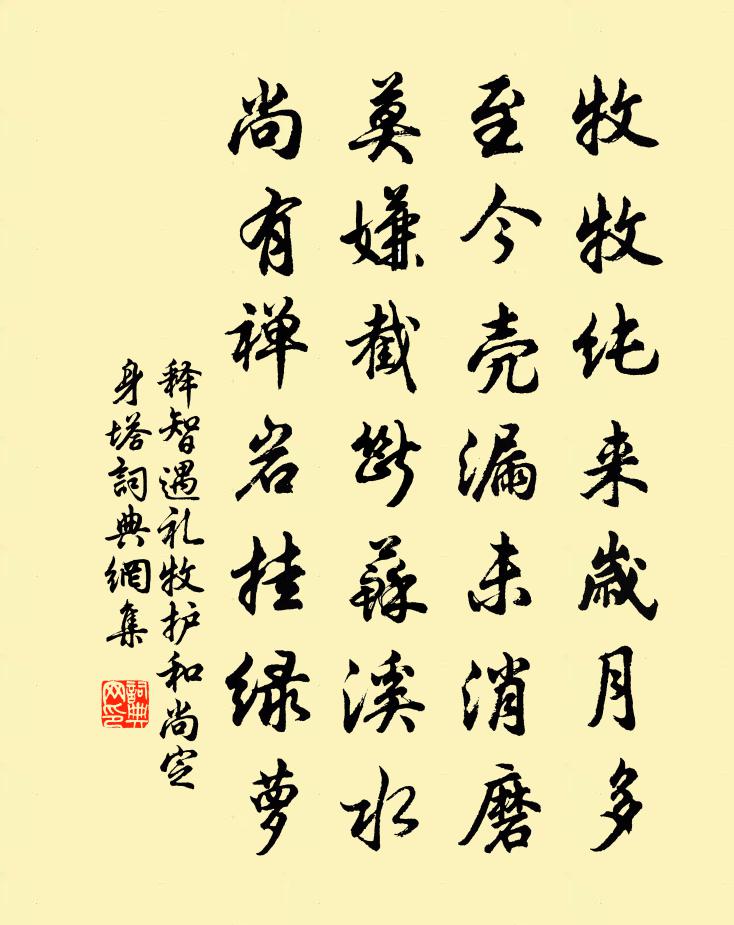 牧牧纯来歲月多
至今壳漏未消磨
莫嫌截断蘇溪水
尚有禅岩挂绿萝
释智遇礼牧护和尚定
身塔詞典網集
詞典
网印